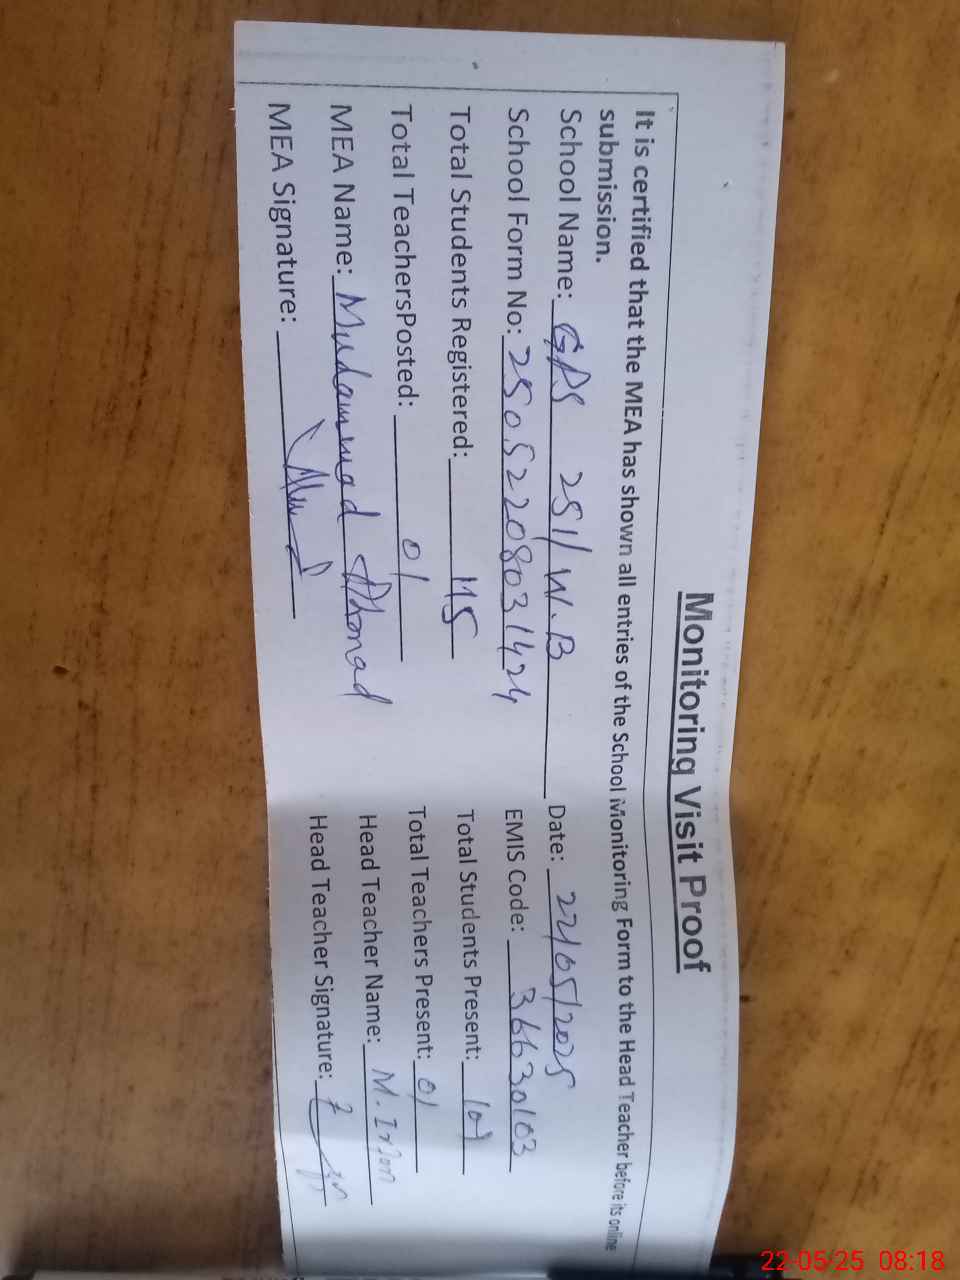 Monitoring Visit Proof
It is certified that the MEA has shown all entries of the School Monitoring Form to the Head Teacher before its online
submission.
School Name: GPS 251/W.B Date: 22/05/2025
School Form No: 25052208031424 EMIS Code: 36630103
Total Students Registered: 115 Total Students Present: 107
Total TeachersPosted: 01 Total Teachers Present: 01
MEA Name: Muhammad Ahmad Head Teacher Name: M.
MEA Signature: Head Teacher Signature:
22-05-25 08:18